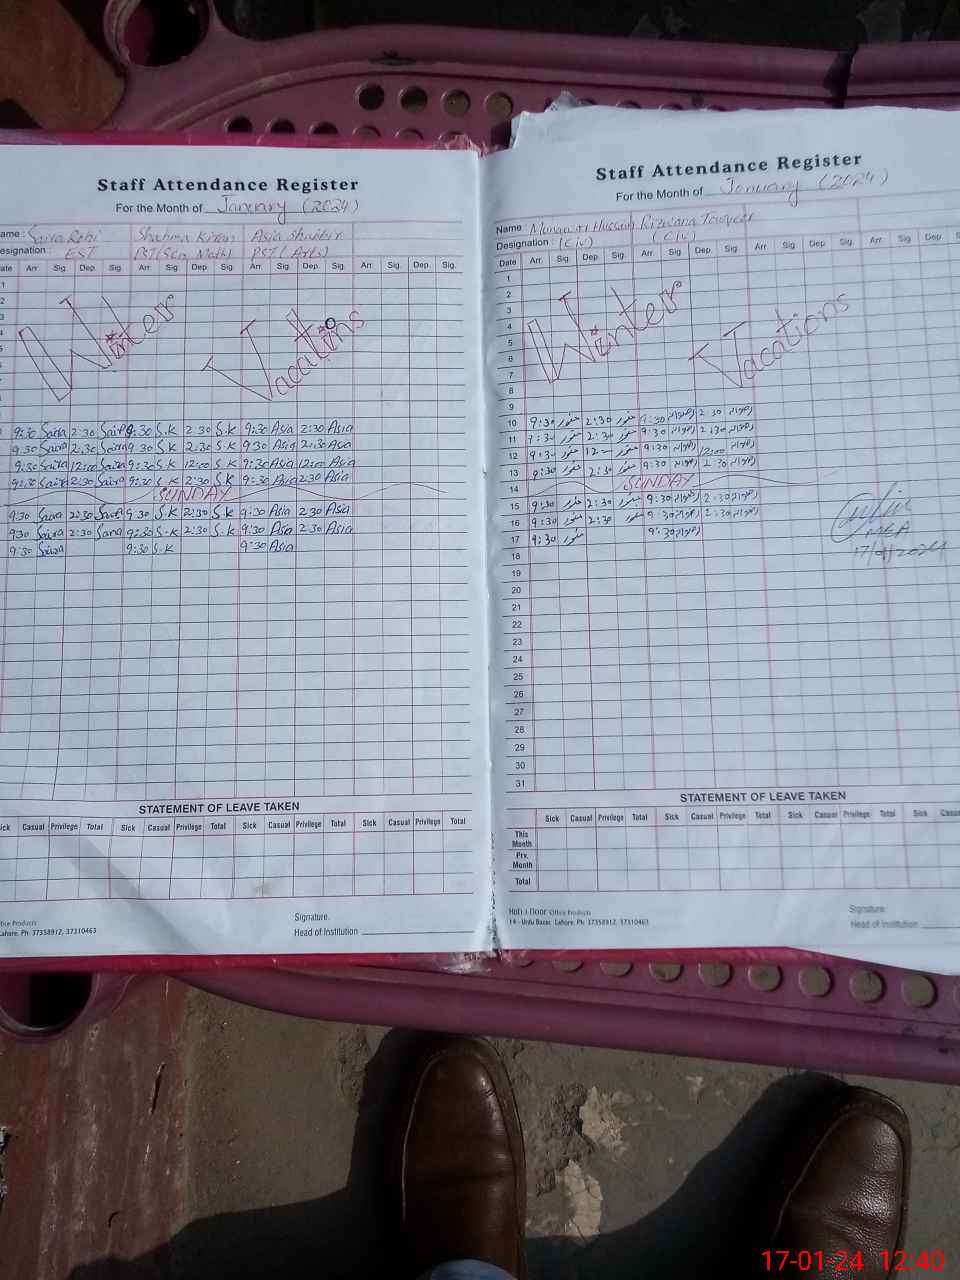 Staff Attendance Register
For the Month of January (2024)
ame : Saira
esignation : EST PST(Sci, Math) PST(Arts)
ate Arr. Sig. Dep. Sig. Arr. Sig. Dep. Sig. Arr. Sig. Dep. Sig. Arr. Sig. Dep. Sig.
1
2
Winter Vacations
9:30 Saira 2:30 Saira 9:30 S.K 2:30 S.K 9:30 Asia 2:30 Asia
9:30 Saira 2:30 Saira 9:30 S.K 2:30 S.K 9:30 Asia 2:30 Asia
9:30 Saira 12:00 Saira 9:30 S.K 12:00 S.K 9:30 Asia 12:00 Asia
9:30 Saira 2:30 Saira 9:30 S.K 2:30 S.K 9:30 Asia 2:30 Asia
SUNDAY
9:30 Saira 2:30 Saira 9:30 S.K 2:30 S.K 9:30 Asia 2:30 Asia
9:30 Saira 2:30 Saira 9:30 S.K 2:30 S.K 9:30 Asia 2:30 Asia
9:30 Saira 9:30 S.K 9:30 Asia
STATEMENT OF LEAVE TAKEN
Sick Casual Privilege Total Sick Casual Privilege Total Sick Casual Privilege Total Sick Casual Privilege Total
Signature.
Head of Institution
ffice Products
Lahore. Ph: 37358912, 37310463
Staff Attendance Register
For the Month of January (2024)
Name : Hussain Rizwana
Designation : (C.iv) (C.iv)
Date Arr. Sig. Dep. Sig. Arr. Sig. Dep. Sig. Arr. Sig. Dep. Sig. Arr. Sig. Dep.
1
2
3
4
5
6
7
8
Winter Vacations
9
10 9:30 منور 2:30 منور 9:30 رضوانہ 2:30 رضوانہ
11 9:30 منور 2:30 منور 9:30 رضوانہ 2:30 رضوانہ
12 9:30 منور 12 منور 9:30 رضوانہ 12:00 رضوانہ
13 9:30 منور 2:30 منور 9:30 رضوانہ 2:30 رضوانہ
14 SUNDAY
15 9:30 منور 2:30 منور 9:30 رضوانہ 2:30 رضوانہ
16 9:30 منور 2:30 منور 9:30 رضوانہ 2:30 رضوانہ
17 9:30 منور 9:30 رضوانہ
MEA
17/01/2024
18
19
20
21
22
23
24
25
26
27
28
29
30
31
STATEMENT OF LEAVE TAKEN
Sick Casual Privilege Total Sick Casual Privilege Total Sick Casual Privilege Total Sick Casual
This Month
Prv. Month
Total
Office Products
14 - Urdu Bazar, Lahore. Ph: 37358912, 37310463
Signature.
Head of Institution
17-01-24 12:40